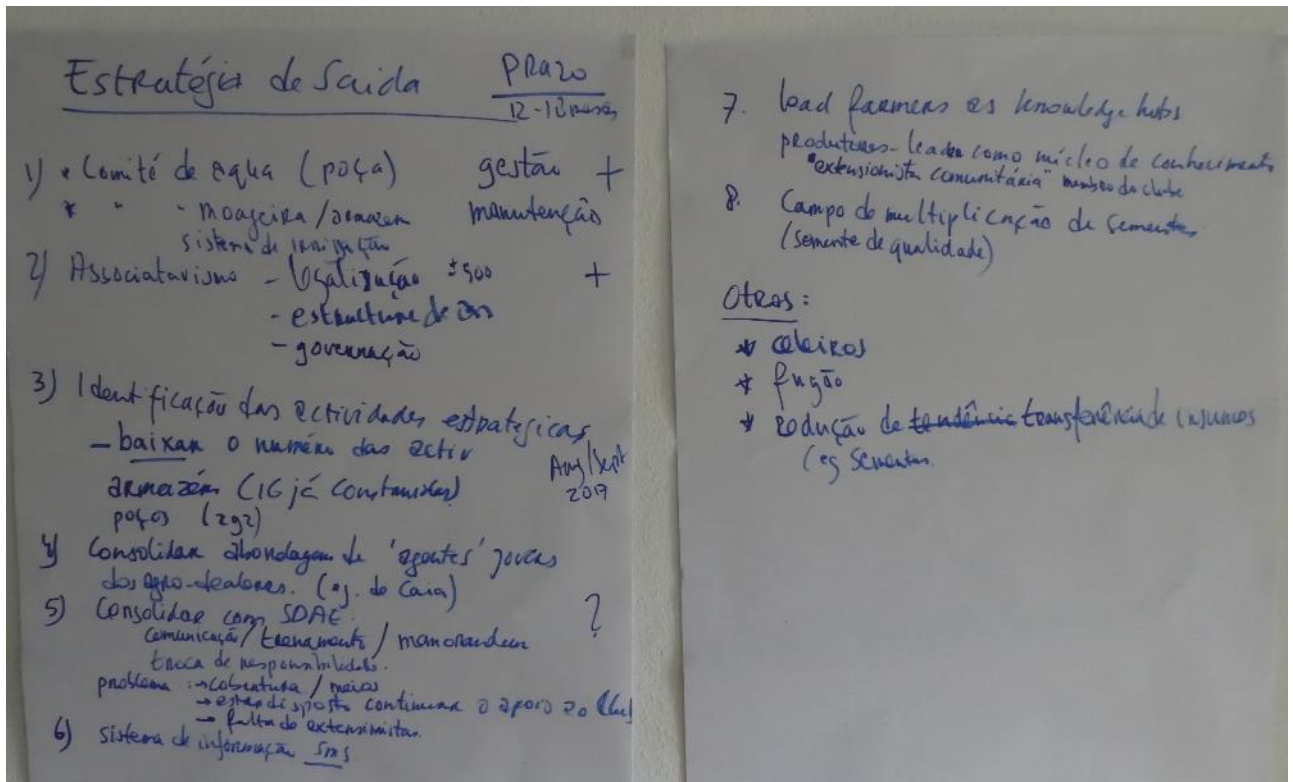 Estratégia de Saida
PRazo
12-18 meses
1) * Comité de agua (poça) gestão +
* " - moageira/armazem manutenção
sistema de irrigação
2) Associatavismo - legalização ±500 +
- estructura de
- governação
3) Identificação das actividades estrategicas
- baixar o numero das activ
armazém (16 já construidos) Aug/Sept
poços (292) 2017
4) Consolidar abordagem de 'agentes' jovens
dos agro-dealeres. (ej. de Caia)
5) Consolidar com SDAE. ?
comunicação/treinamento/memorandum
troca de responsabilidade.
problema: → cobertura/meios
→ estar disposto continuar o apoio ao
→ falta de extensionistas
6) sistema de informação sms
7. lead farmers as knowledge hubs
produtores-leader como núcleo de conhecimento
"extensionista comunitária" membro do clube
8. Campo de multiplicação de sementes
(semente de qualidade)
Otros:
* celeiros
* fugão
* redução de tendência transferência de insumos
(eg sementes.